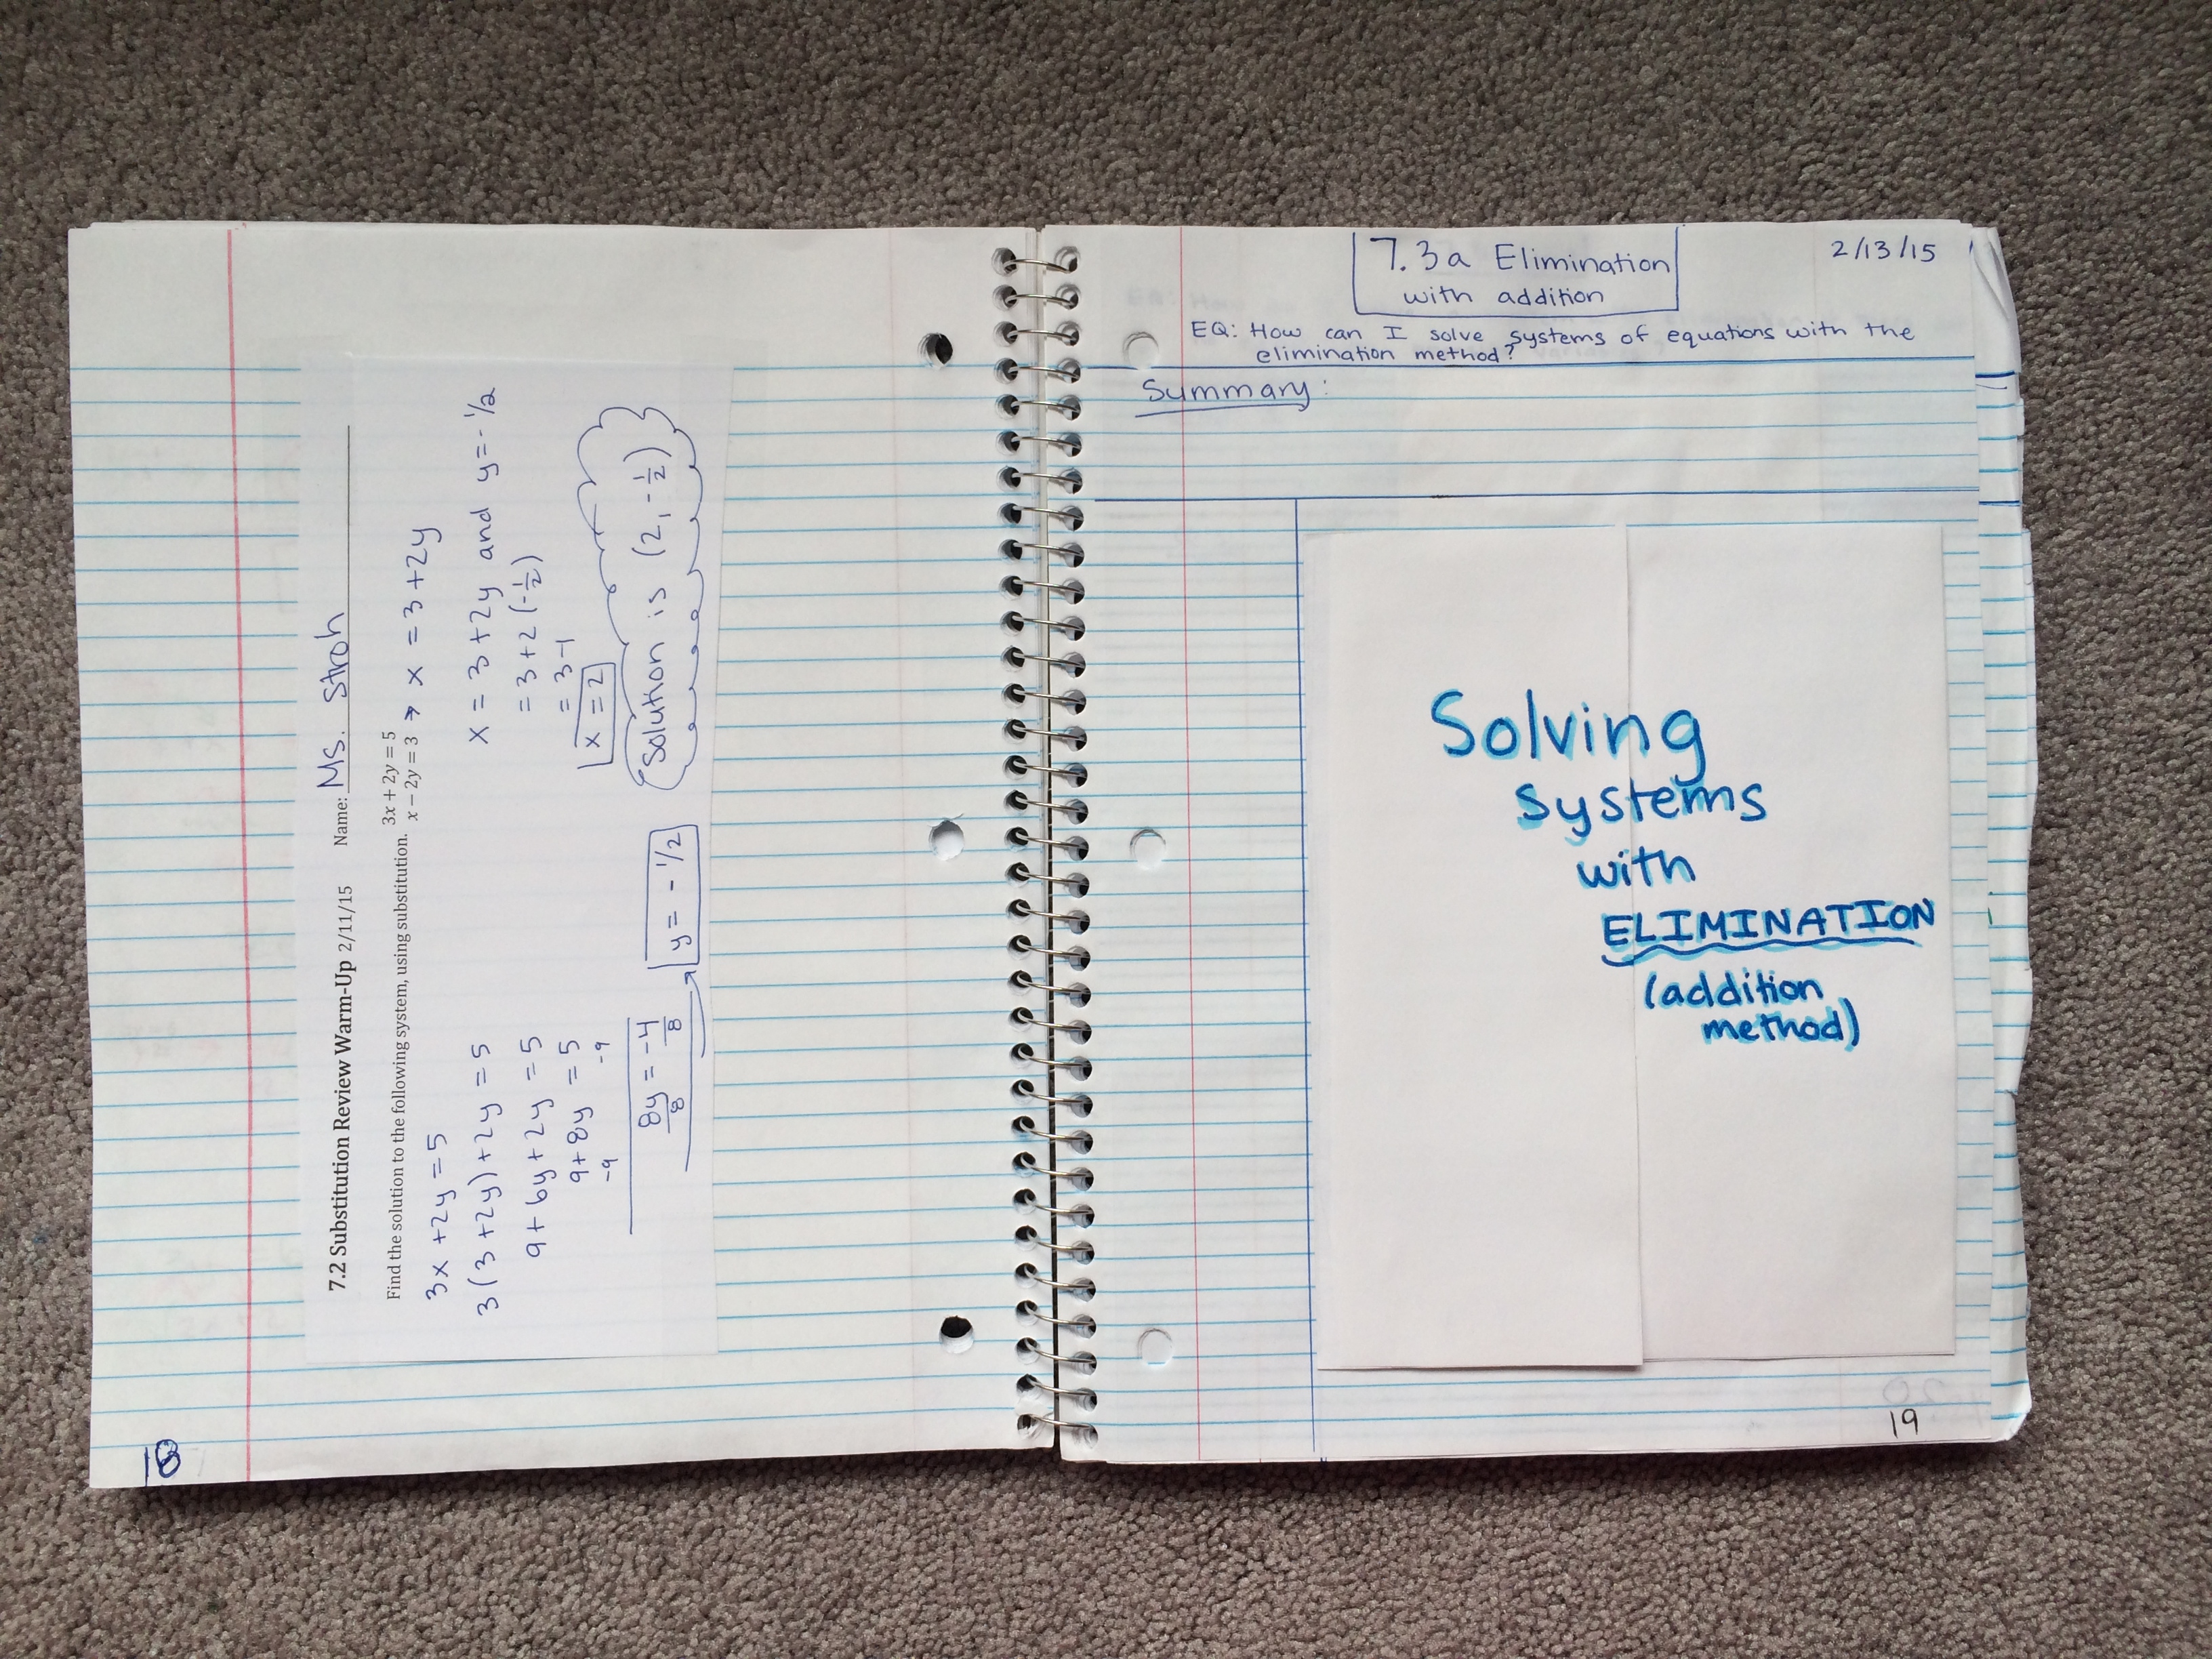 7.2 Substitution Review Warm-Up 2/11/15 Name: Ms. Stroh
Find the solution to the following system, using substitution. 3x + 2y = 5
x − 2y = 3 → x = 3 + 2y
3x + 2y = 5
3(3 + 2y) + 2y = 5
9 + 6y + 2y = 5
9 + 8y = 5
-9 -9
8y = -4
8 8
y = - 1/2
x = 3 + 2y and y = - 1/2
= 3 + 2 (- 1/2)
= 3 - 1
x = 2
Solution is (2, - 1/2)
18
7.3a Elimination
with addition
2/13/15
EQ: How can I solve systems of equations with the
elimination method?
Summary:
Solving
systems
with
ELIMINATION
(addition
method)
19